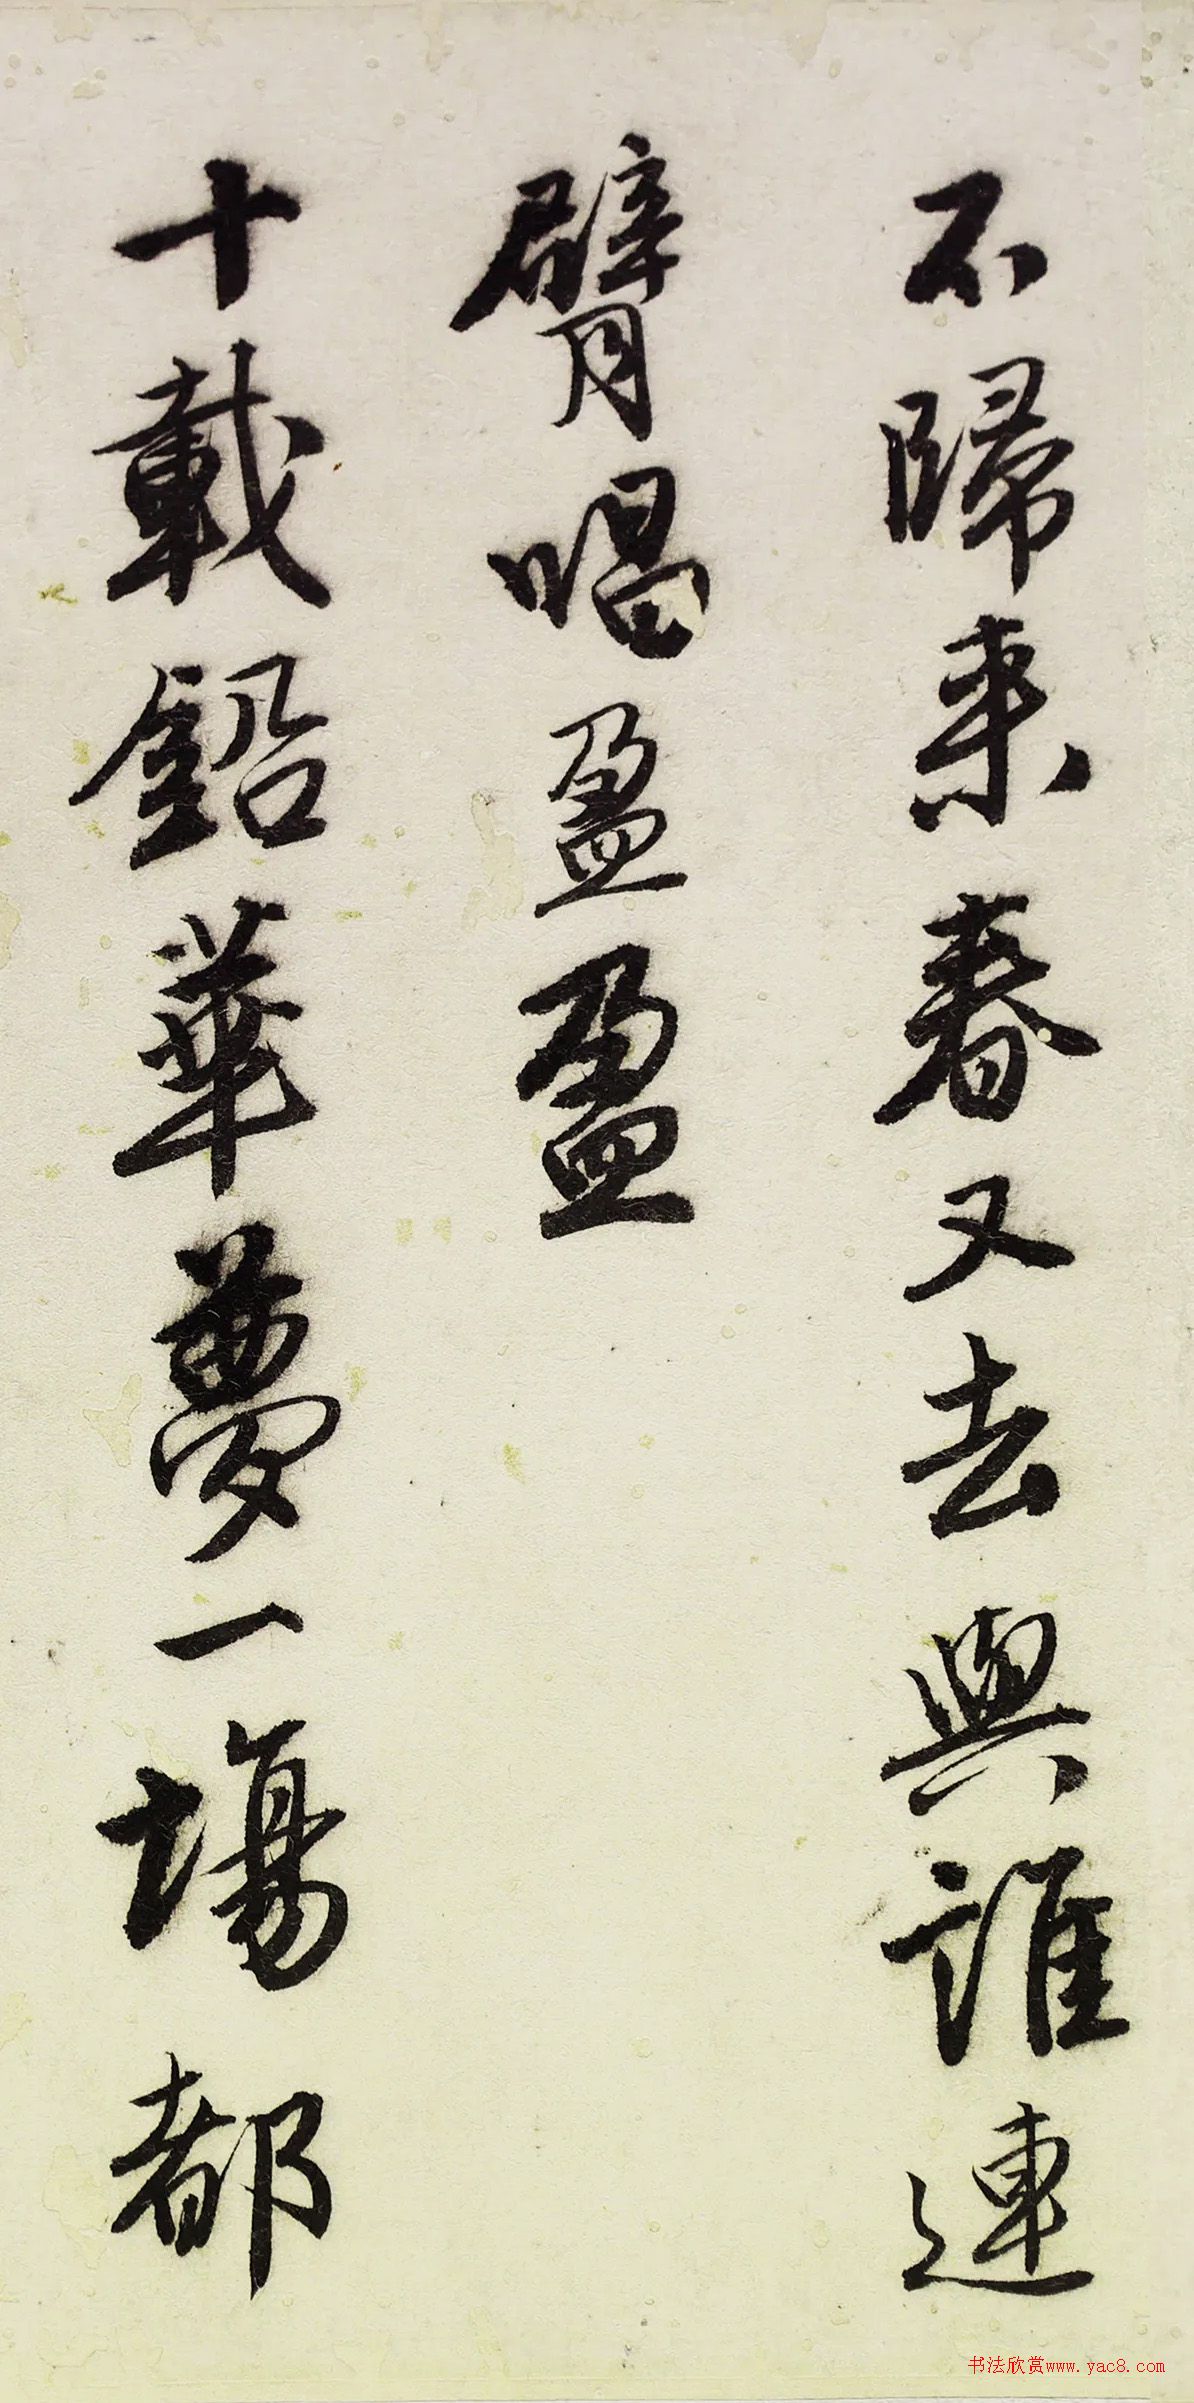 不歸来春又去與誰連
臂唱盈盈
十載鉛華夢一場都
书法欣赏www.yac8.com